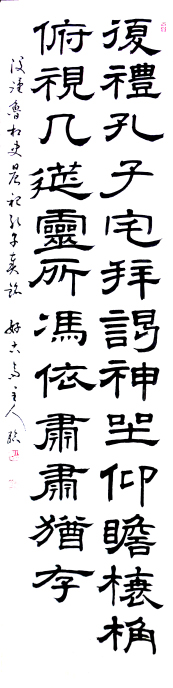 復禮孔子宅拜謁神坐仰瞻榱桷
俯視几筵靈所馮依肅肅猶存
漢魯相史晨祀孔子奏銘 好古 主人